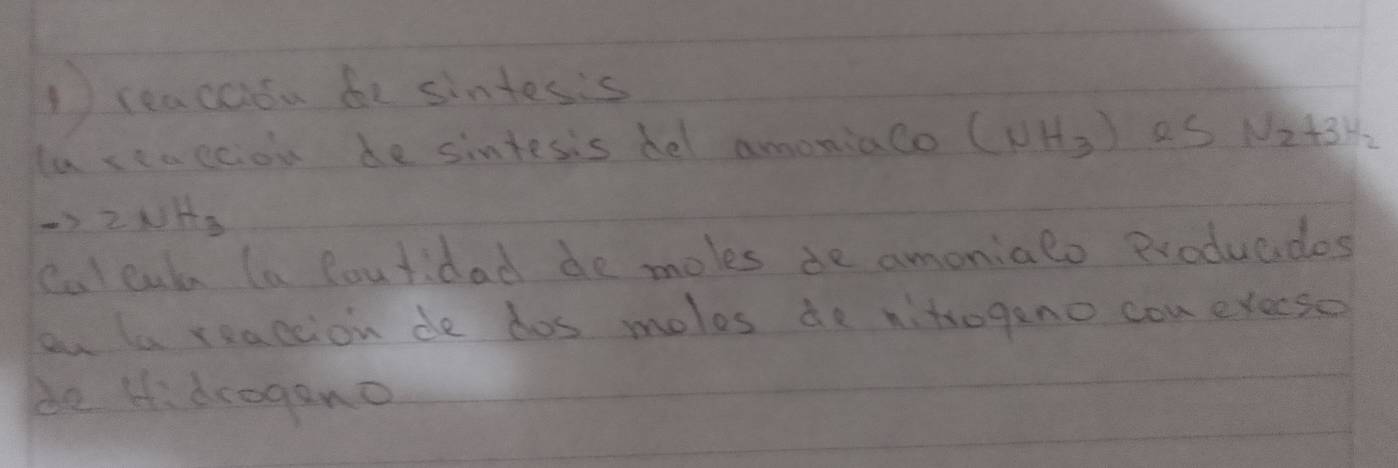 1) reacción de sintesis
la reacción de sintesis del amoniaco (NH3) es N2+3H2
-> 2NH3
Calcula la Cantidad de moles de amoniaco Producidos
en la reacción de dos moles de nitrogeno con execso
de Hidrogeno